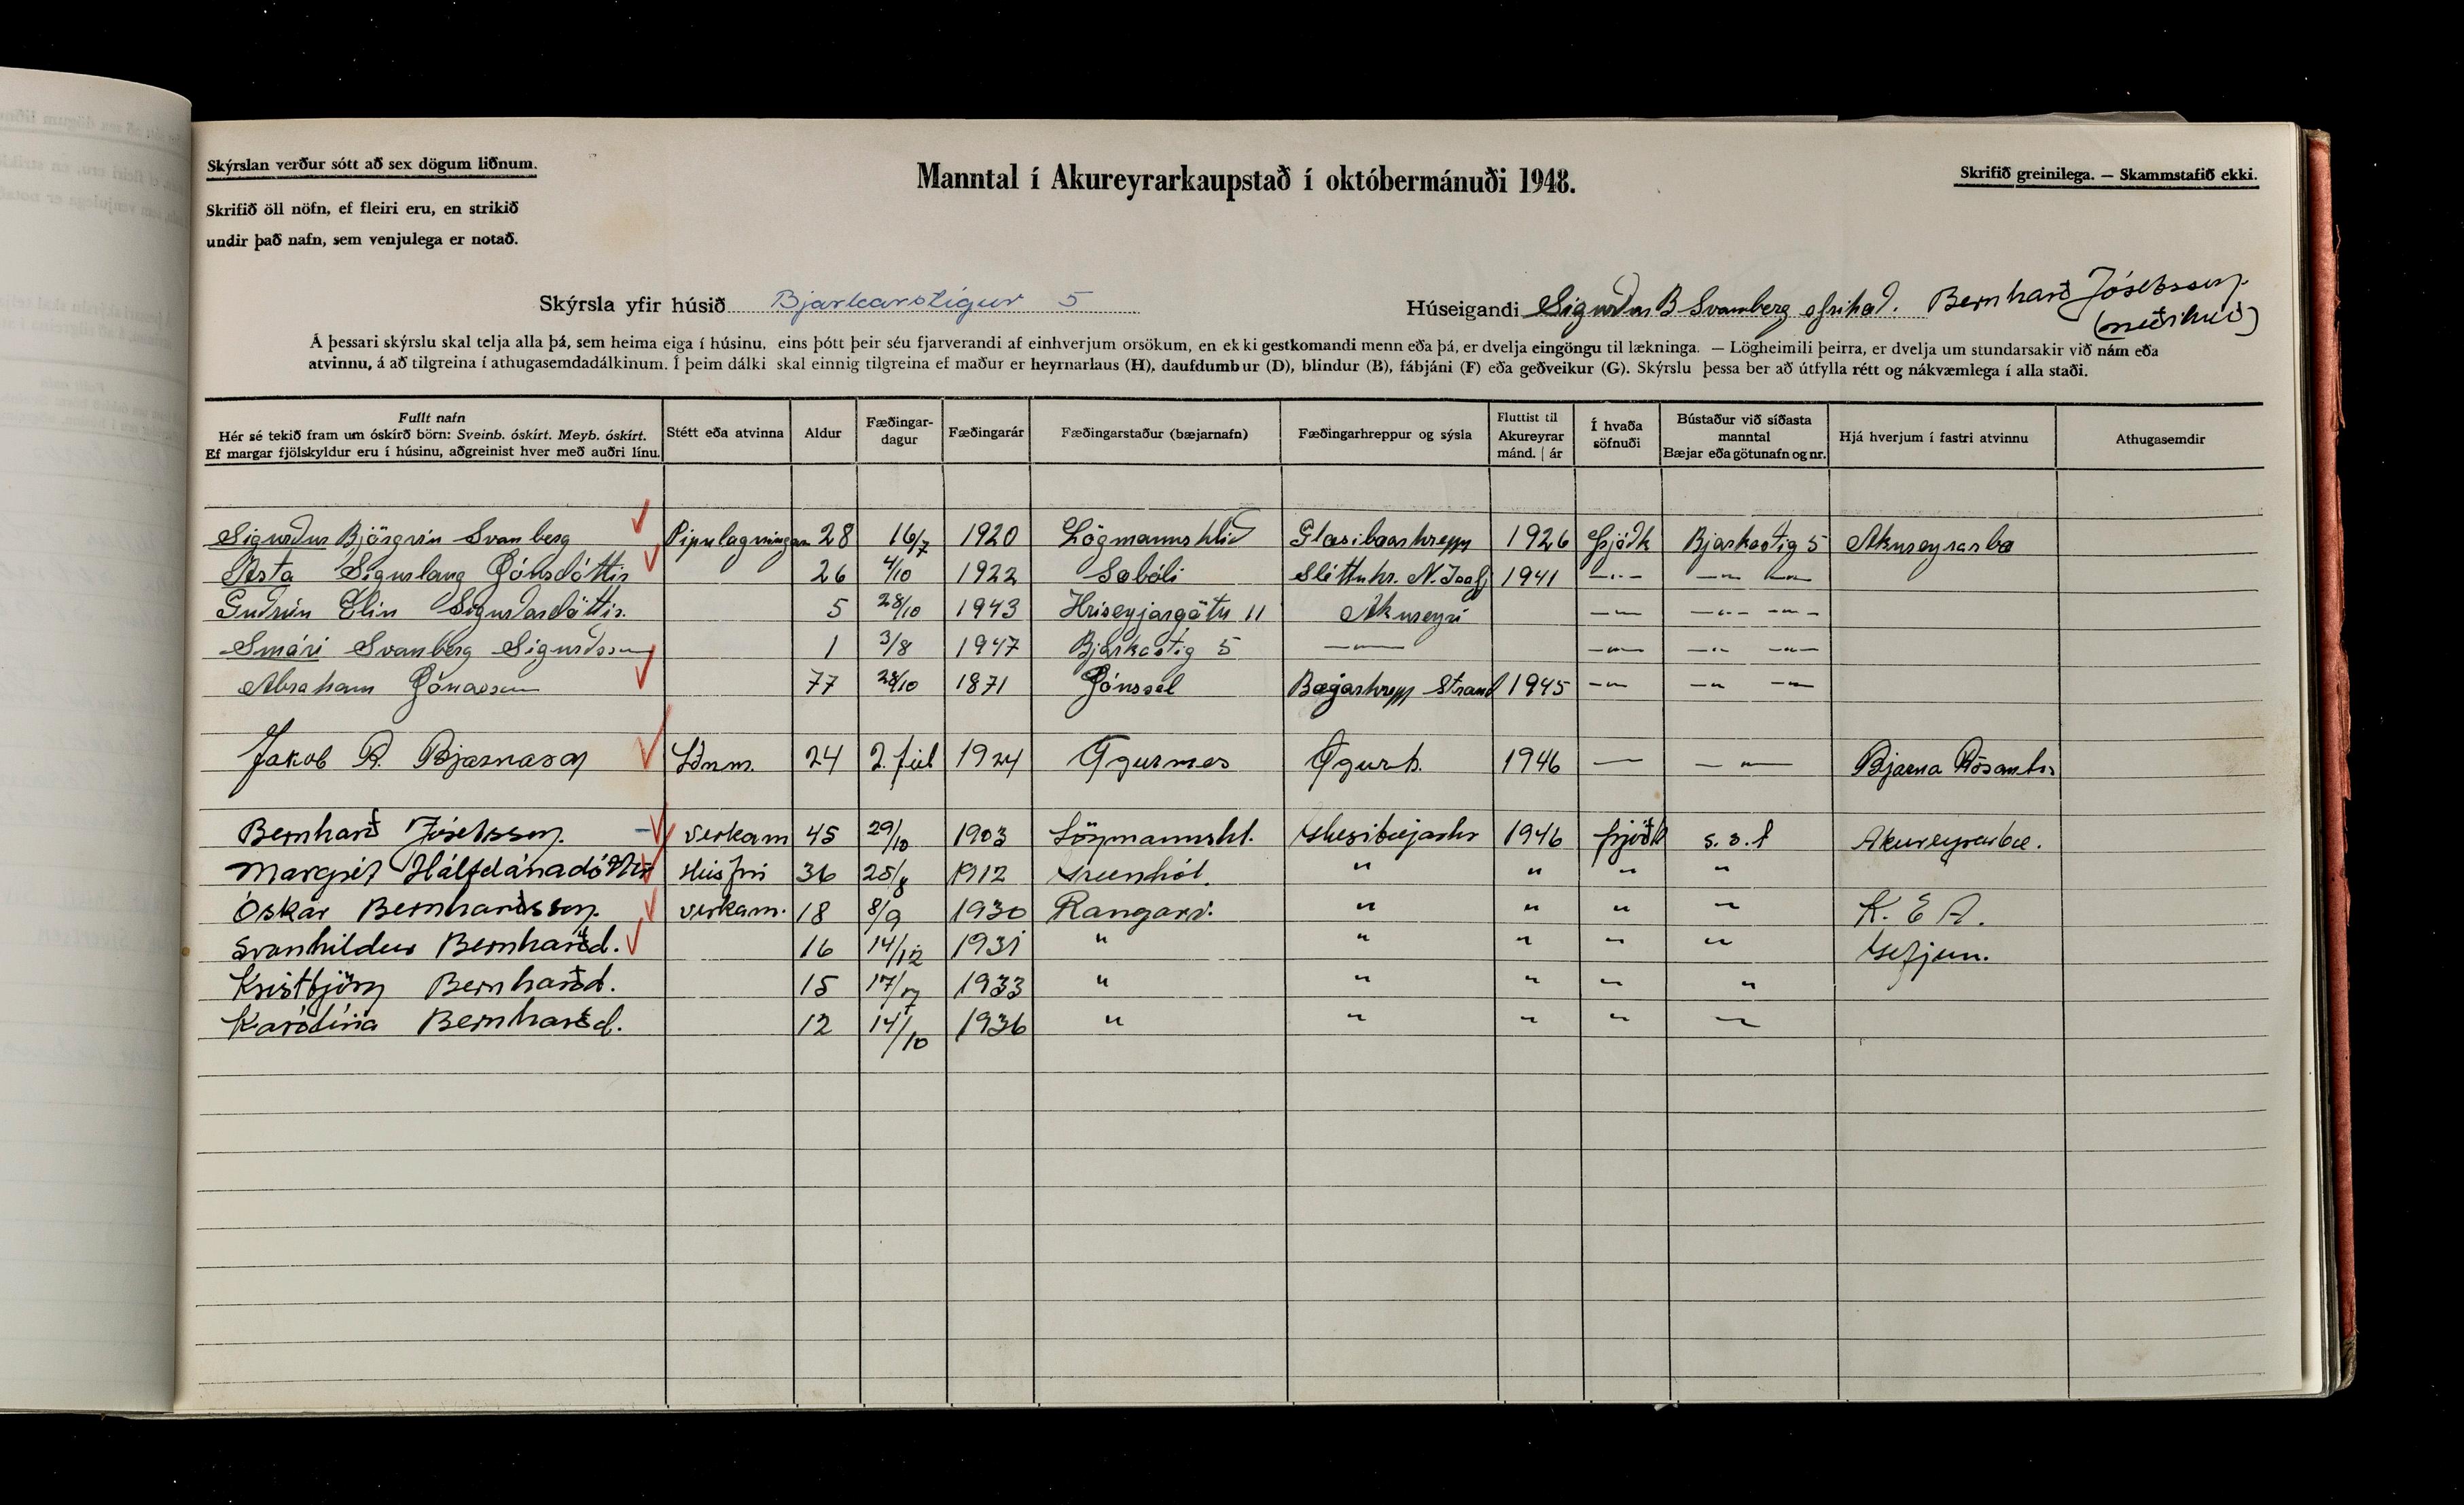 Skýrslan verður sótt að sex dögum liðnum.
Skrifið öll nöfn, ef fleiri eru, en strikið
undir það nafn, sem venjulega er notað.
Manntal í Akureyrarkaupstað í októbermánuði 1948.
Skrifið greinilega. — Skammstafið ekki.
Skýrsla yfir húsið Bjarkarstígur 5
Húseigandi Sigurður B Svanberg efrihæð. Bernharð Jósefsson.
(neðri hæð)
Á þessari skýrslu skal telja alla þá, sem heima eiga í húsinu, eins þótt þeir séu fjarverandi af einhverjum orsökum, en ekki gestkomandi menn eða þá, er dvelja eingöngu til lækninga. — Lögheimili þeirra, er dvelja um stundarsakir við nám eða
atvinnu, á að tilgreina í athugasemdadálkinum. Í þeim dálki skal einnig tilgreina ef maður er heyrnarlaus (H), daufdumbur (D), blindur (B), fábjáni (F) eða geðveikur (G). Skýrslu þessa ber að útfylla rétt og nákvæmlega í alla staði.
Fullt nafn
Hér sé tekið fram um óskírð börn: Sveinb. óskírt. Meyb. óskírt.
Ef margar fjölskyldur eru í húsinu, aðgreinist hver með auðri línu.
Stétt eða atvinna
Aldur
Fæðingar-
dagur
Fæðingarár
Fæðingarstaður (bæjarnafn)
Fæðingarhreppur og sýsla
Fluttist til
Akureyrar
mánd. | ár
Í hvaða
söfnuði
Bústaður við síðasta
manntal
Bæjar eða götunafn og nr.
Hjá hverjum í fastri atvinnu
Athugasemdir
Sigurður Björgvin Svanberg Pípulagningam 28 16/7 1920 Lögmannshlíð Glæsibæarhrepp 1926 Þjóðk Bjarkastig 5 Akureyrarbæ
Ásta Sigurlaug Jónsdóttir 26 4/10 1922 Sæbóli Sléttuhr. N. Ísafj 1941 —〃— —〃— —〃—
Guðrún Elín Sigurðardóttir. 5 28/10 1943 Hríseyjargötu 11 Akureyri —〃— —〃— —〃—
Smári Svanberg Sigurðsson 1 3/8 1947 Bjarkastig 5 —〃— —〃— —〃— —〃—
Abraham Jónasson 77 28/10 1871 Jónssel Bæjarhrepp Strand 1945 —〃— —〃— —〃—
Jakob R. Bjarnason Iðnm. 24 2. júl 1924 Ögurnes Ögurh. 1946 — —〃— Bjarna Rósants
Bernharð Jósefsson. verkam 45 29/10 1903 Lögmannshl. Glæsibæjarhr 1946 þjóðk s. s. f Akureyrarbæ.
Margrét Hálfdánadóttir Húsfrú 36 25/8 1912 〃 〃 〃 〃
Óskar Bernharðsson. verkam. 18 8/9 1930 Rangárv. 〃 〃 〃 〃 K. E A.
Svanhildur Bernharðd. 16 14/12 1931 〃 〃 〃 〃 〃 Gefjun.
Kristbjörg Bernharðd. 15 17/7 1933 〃 〃 〃 〃 〃
Karólína Bernharðd. 12 14/10 1936 〃 〃 〃 〃 〃